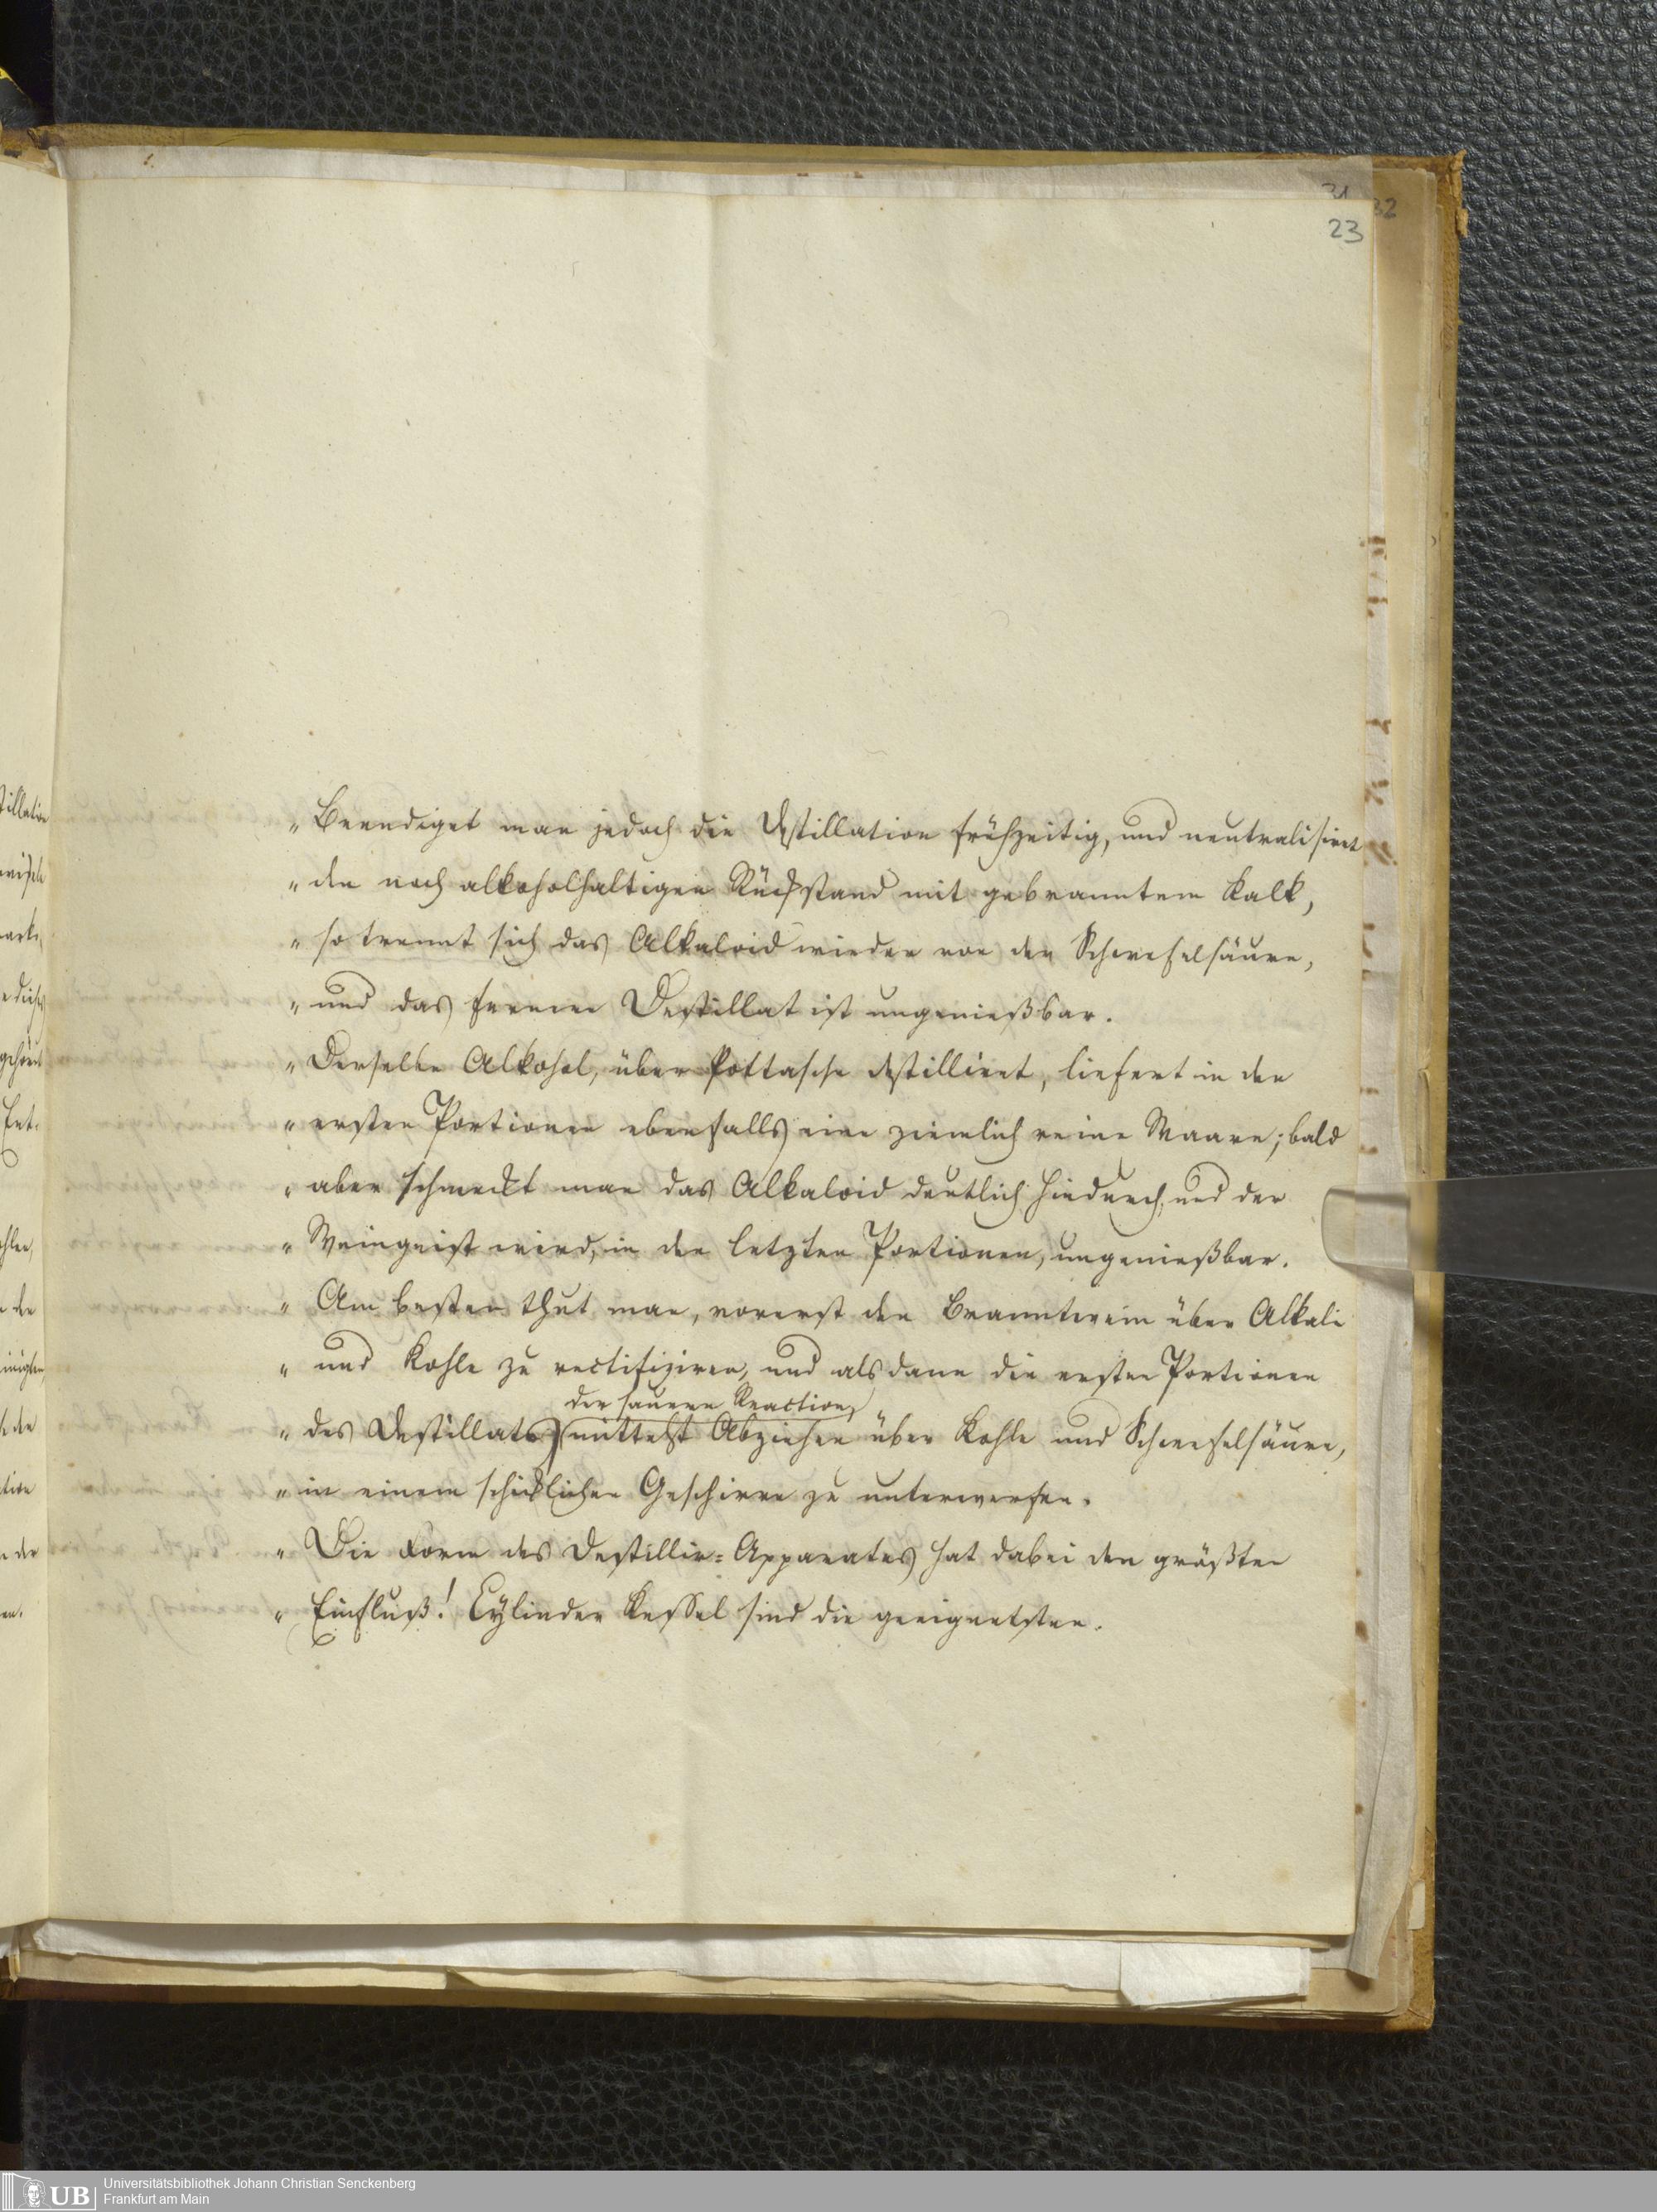 31
32
23
„Beendiget man jedoch die Destillation frühzeitig, und neutralisiret
„den noch alkoholhaltigen Rückstand mit gebranntem Kalk,
„so trennt sich das Alkaloid wieder von der Schwefelsäure,
„und das fernere Destillat ist ungenießbar.
„Derselbe Alkohol, über Pottasche destilliret, liefert in den
„ersten Portionen ebenfalls eine ziemlich reine Waare; bald
„aber schmeckt man das Alkaloid deutlich hindurch, und der
„Weingeist wird, in den letzten Portionen, ungenießbar.
„Am besten thut man, vorerst den Branntwein über Alkali
„und Kohle zu rectifiziren, und alsdann die ersten Portionen
der sauren Reaction,
„des Destillats, mittelst Abziehen über Kohle und Schwefelsäure,
„in einem schicklichen Geschirre zu unterwerfen.
„Die Form des Destillir=Apparates hat dabei den größten
„Einfluß! Cylinder Kessel sind die geeignetsten.
UB
Universitätsbibliothek Johann Christian Senckenberg
Frankfurt am Main